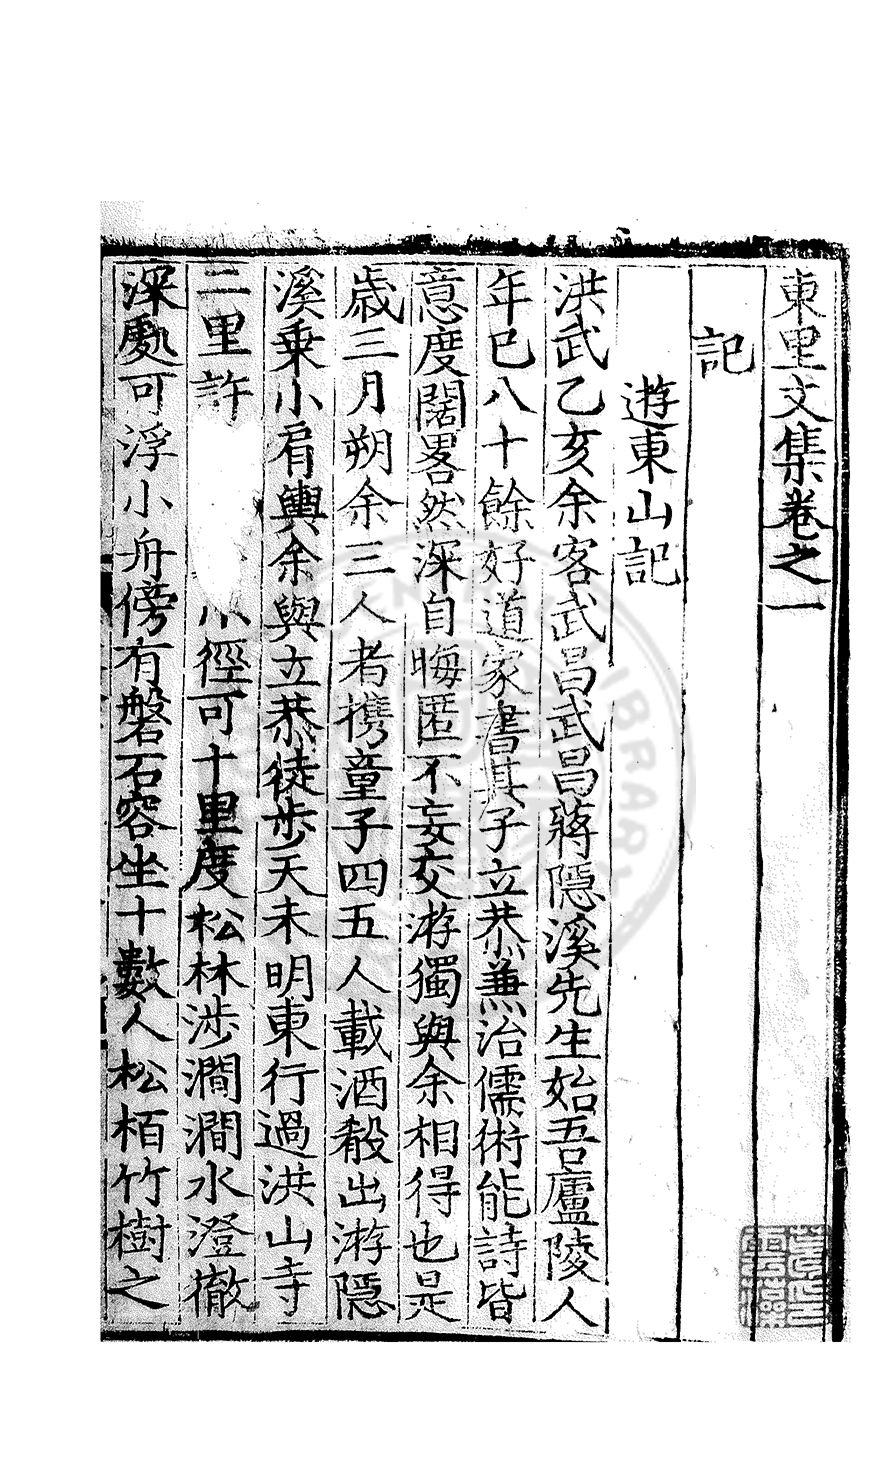 東里文集卷之一
記
遊東山記
洪武乙亥余客武昌武昌蔣隱溪先生始吾廬陵人
年巳八十餘好道家書其子立恭兼治儒術能詩皆
意度闊畧然深自晦匿不妄交游獨與余相得也是
歲三月朔余三人者携童子四五人載酒殽出游隱
溪乗小肩輿余與立恭徒步天未明東行過洪山寺
二里許 徑可十里度松林涉澗澗水澄徹
深處可浮小舟傍有磐石容坐十數人松栢竹樹之
CENTRAL LIBRARY